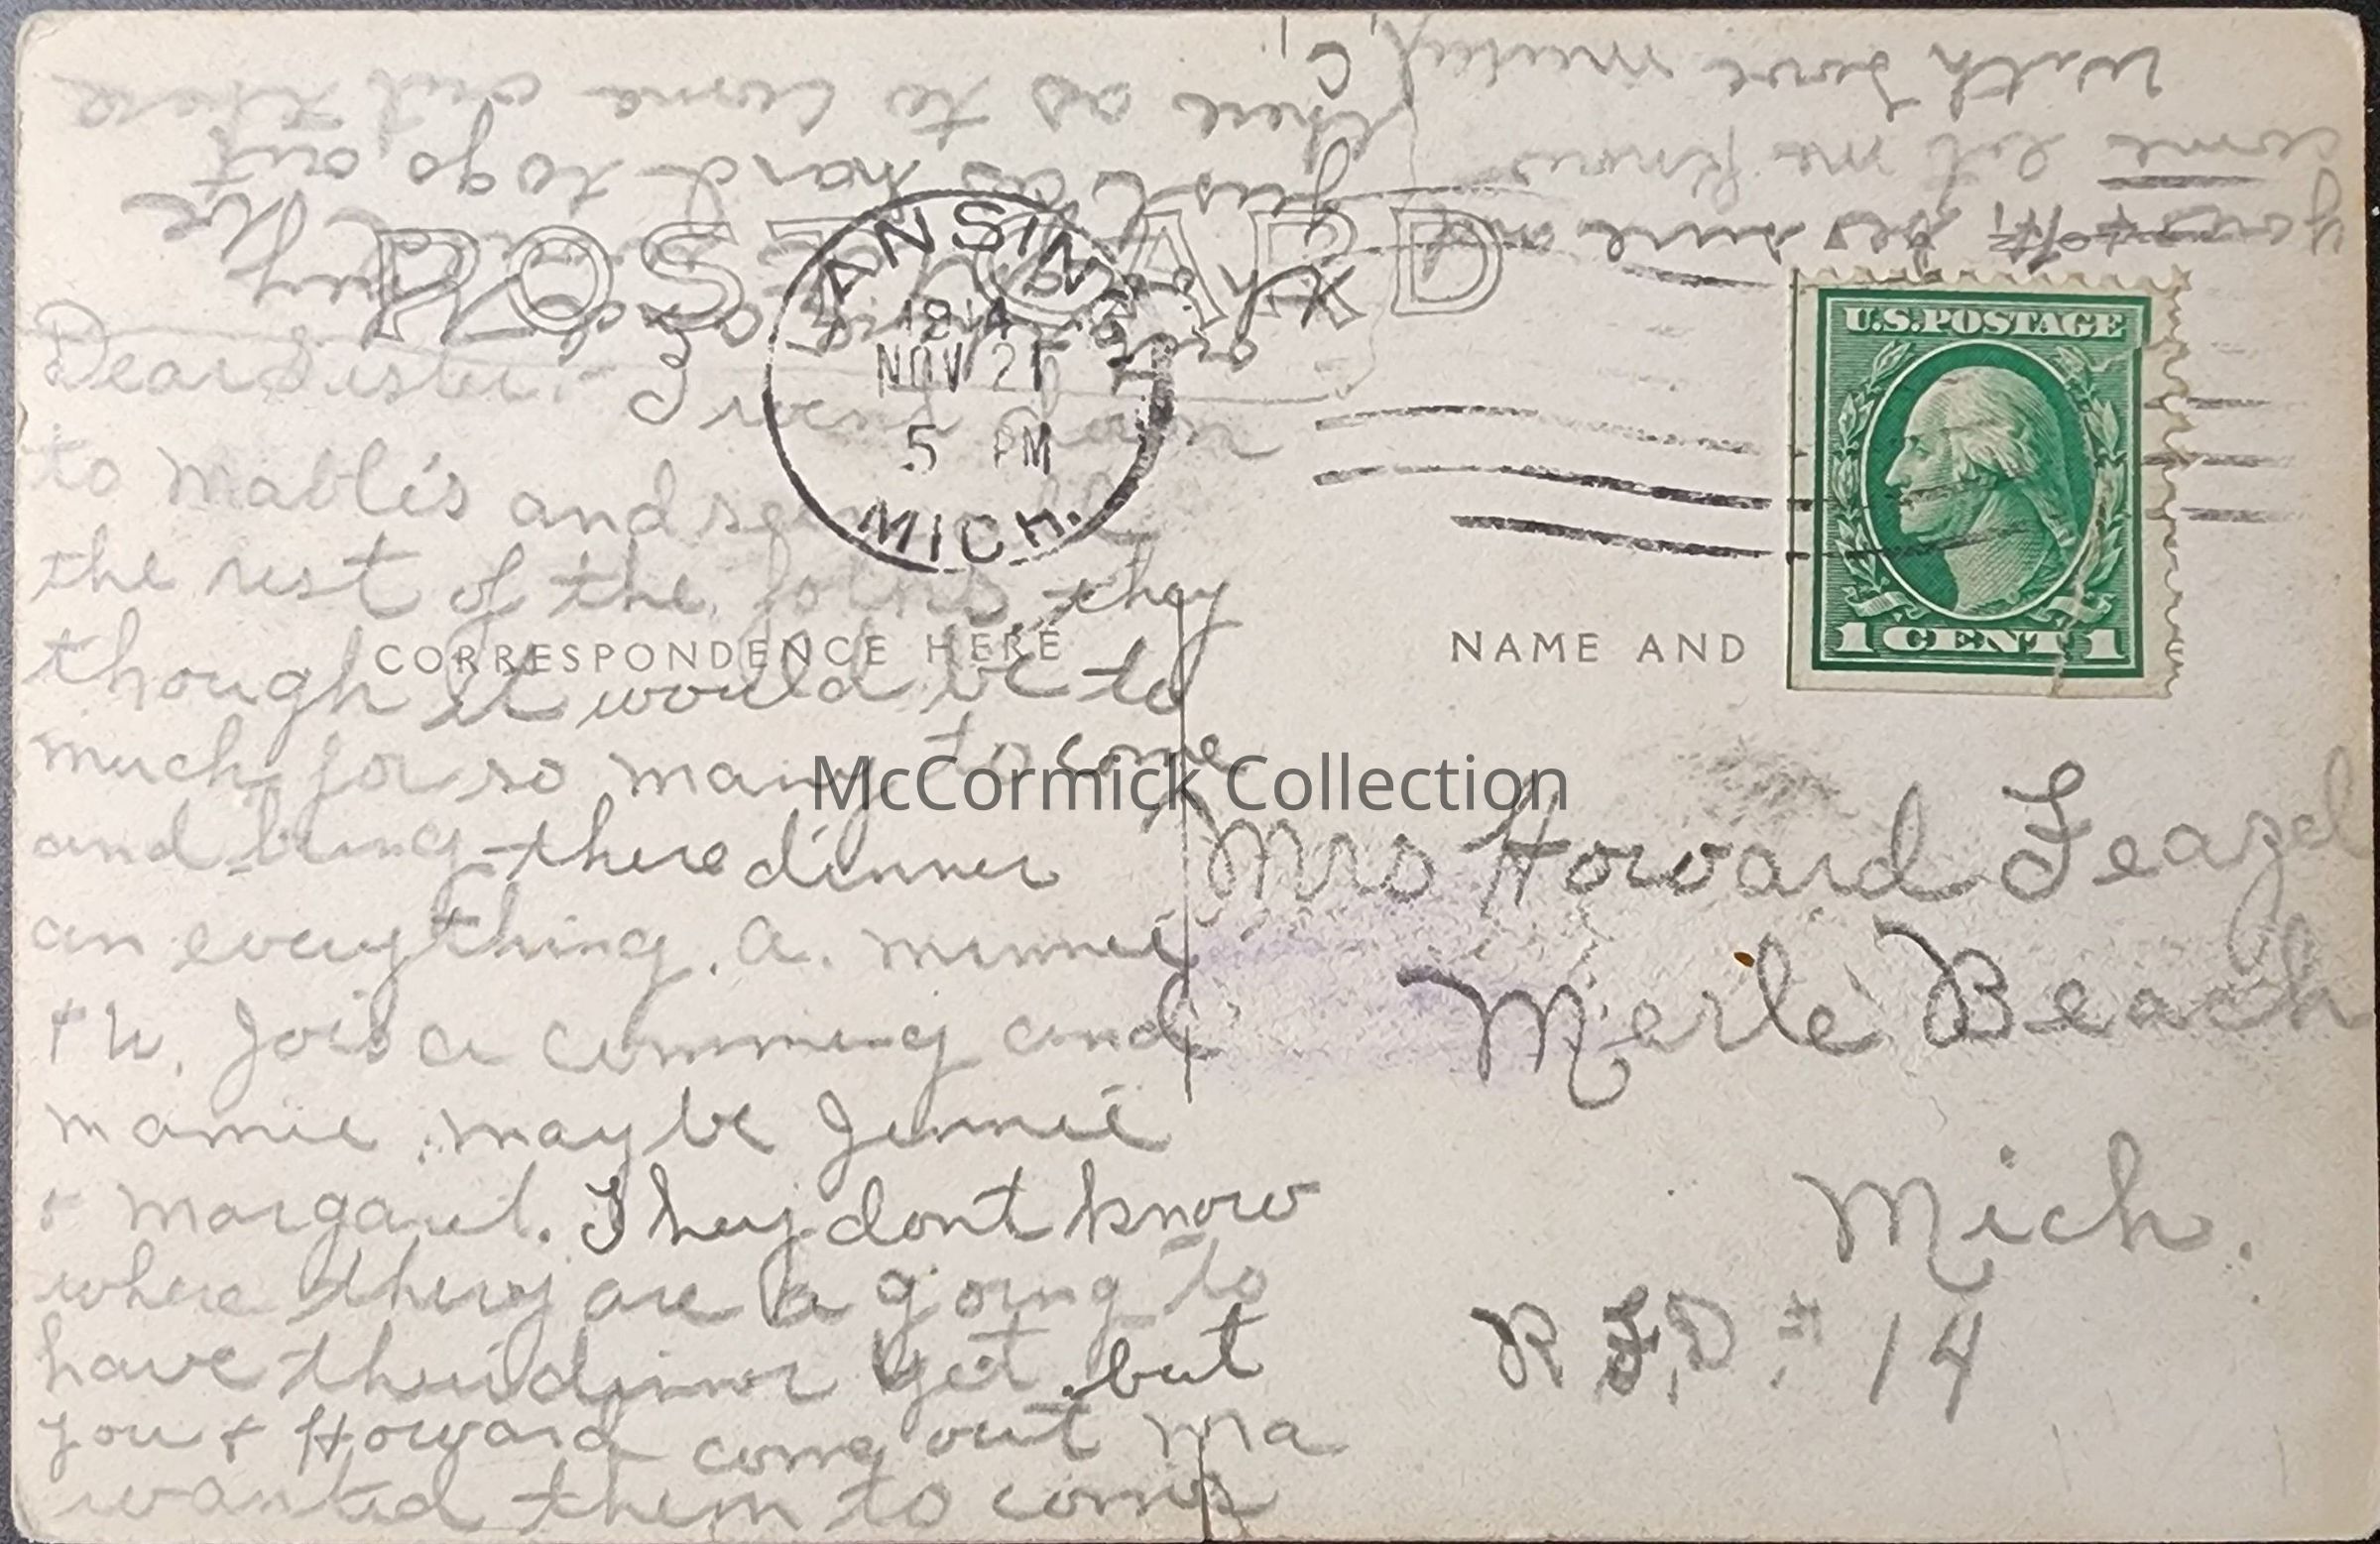 POST CARD
LANSING
1914
NOV 21
5 PM
MICH.
U.S.POSTAGE
1 CENT 1
CORRESPONDENCE HERE
NAME AND
Dear Sister:- I went down
to Mable's and seen all
the rest of the folks they
though it would be to
much for so many to come
and bring there dinner
an everything. a. minnie
+ W. Joie a comming and
mamie maybe Jennie
+ Margaret. They dont know
where they are a going to
have their dinner yet but
you + Howard come out Ma
wanted them to come
out
just as hard to go out
there as to come out there
you be sure and
come let me know
with love
Mrs Howard Feazel
Merle Beach
Mich.
R F.D. # 14
McCormick Collection